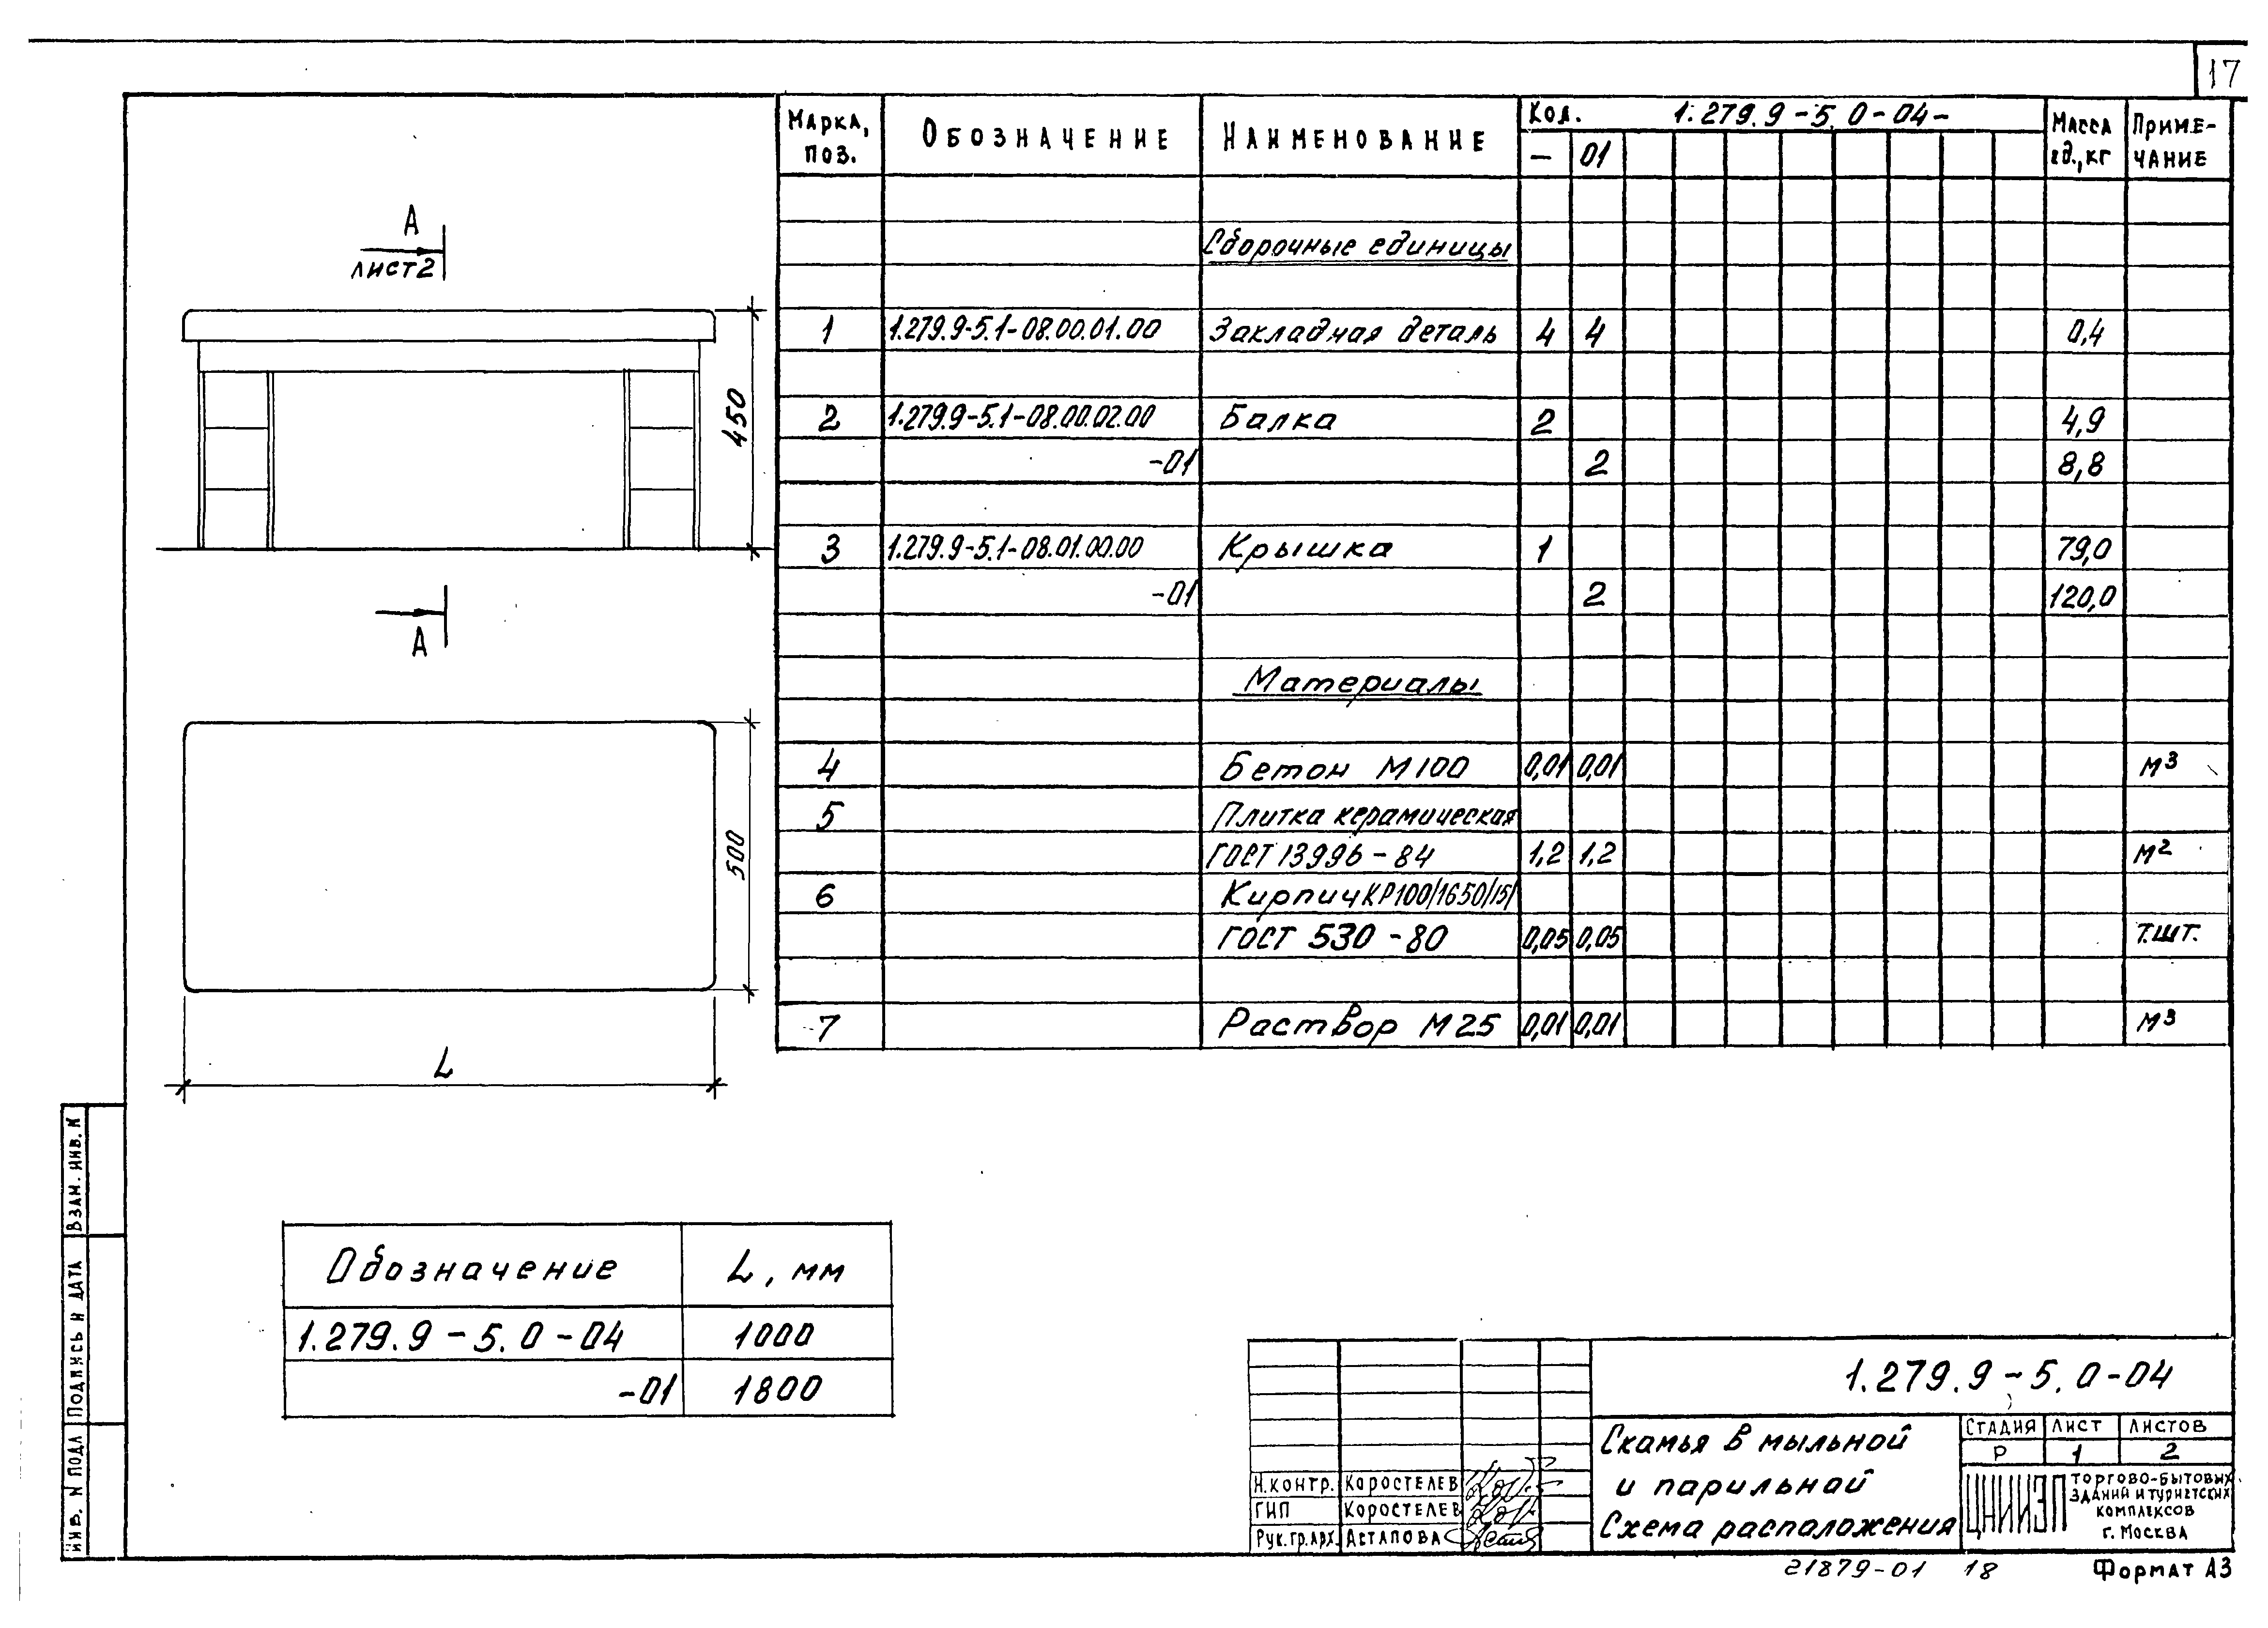 17
А
лист 2
450
А
500
L
Марка, поз. Обозначение Наименование Кол. 1.279.9-5.0-04- Масса ед., кг Примечание
– 01
Сборочные единицы
1 1.279.9-5.1-08.00.01.00 Закладная деталь 4 4 0,4
2 1.279.9-5.1-08.00.02.00 Балка 2 4,9
-01 2 8,8
3 1.279.9-5.1-08.01.00.00 Крышка 1 79,0
-01 2 120,0
Материалы
4 Бетон М100 0,01 0,01 м3
5 Плитка керамическая
ГОСТ 13996-84 1,2 1,2 м2
6 Кирпич КР100/1650/15/
ГОСТ 530-80 0,05 0,05 т.шт.
7 Раствор М25 0,01 0,01 м3
Обозначение L, мм
1.279.9-5.0-04 1000
-01 1800
Взам. инв. №
Подпись и дата
Инв. N подл
1.279.9-5.0-04
Скамья в мыльной
и парильной
Схема расположения
Стадия Лист Листов
Р 1 2
ЦНИИЭП торгово-бытовых
зданий и туристских
комплексов
г. Москва
Н.контр. Коростелев
ГИП Коростелев
Рук.гр.арх. Астапова
21879-01 18
Формат А3